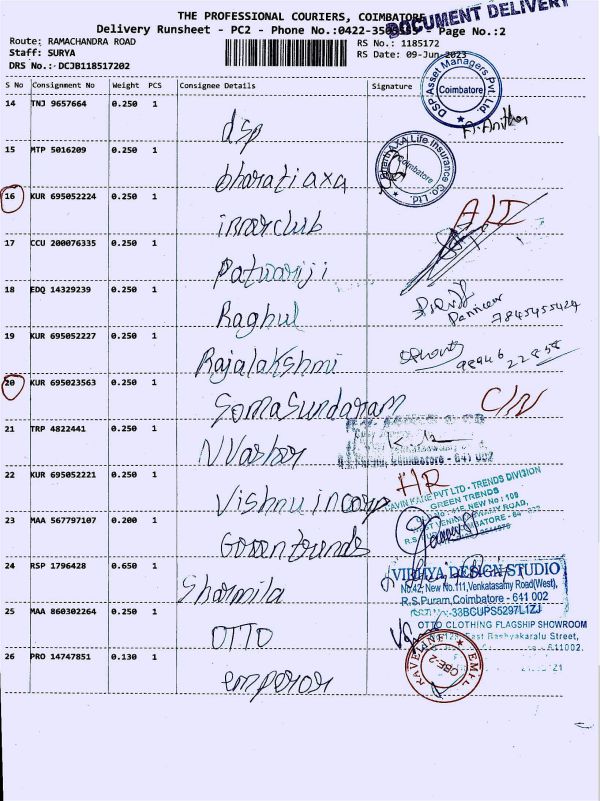 THE PROFESSIONAL COURIERS, COIMBATORE
DOCUMENT DELIVERY
Delivery Runsheet - PC2 - Phone No.:0422-3503535 Page No.:2
Route: RAMACHANDRA ROAD
RS No.: 1185172
Staff: SURYA
RS Date: 09-Jun-2023
DRS No.:-DCJB118517202
S No Consignment No Weight PCS Consignee Details Signature
DSP Asset Managers Pvt. Ltd. Coimbatore
14 TNJ 9657664 0.250 1 dsp
15 MTP 5016209 0.250 1 bharati axa
Bharti AXA Life Insurance Co. Ltd. Coimbatore
16 KUR 695052224 0.250 1 innerclub
17 CCU 200076335 0.250 1 Patwariji
18 EDQ 14329239 0.250 1 Raghul
7845455424
19 KUR 695052227 0.250 1 Rajalakshmi
98946 22858
20 KUR 695023563 0.250 1 Somasundaram C/N
21 TRP 4822441 0.250 1
R.S. Puram, Coimbatore - 641 002
22 KUR 695052221 0.250 1 Vishnu incorp HR
PVT LTD - TRENDS DIVISION
GREEN TRENDS
23 MAA 567797107 0.200 1 Green trends
24 RSP 1796428 0.650 1 Sharmila
VIBHAYA DESIGN STUDIO
No.42, New No.111, Venkatasamy Road(West),
R.S.Puram, Coimbatore - 641 002
GSTIN:-33BCUPS5297L1ZJ
25 MAA 860302264 0.250 1 OTTO
OTTO CLOTHING FLAGSHIP SHOWROOM
East Bashyakaralu Street,
641002.
26 PRO 14747851 0.130 1 emperor
CBE-2